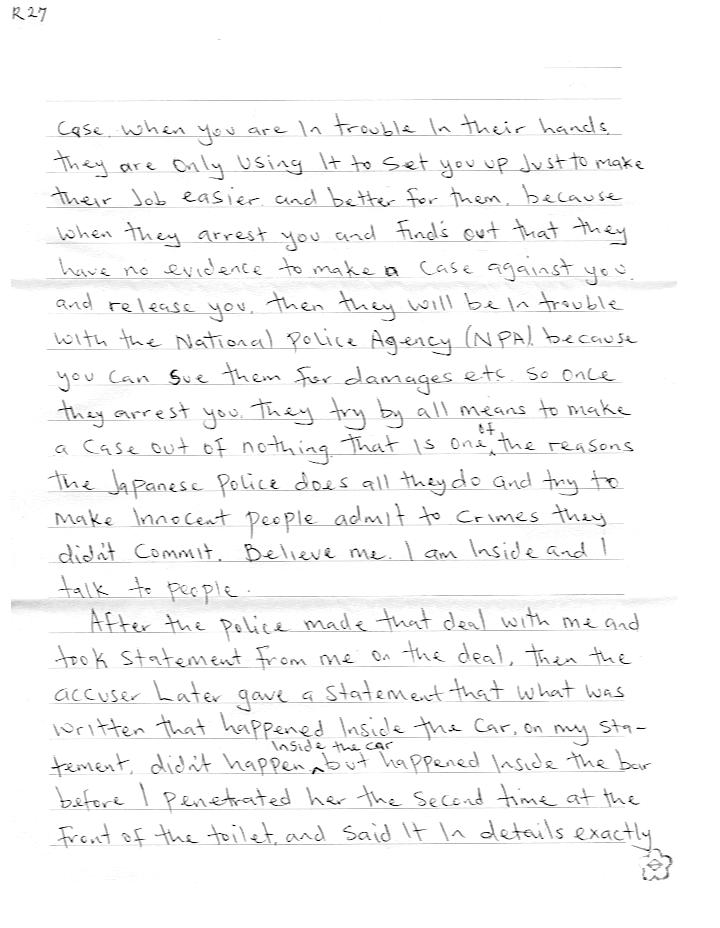 R27
Case. When you are In trouble In their hands.
they are Only Using It to Set you up Just to make
their Job easier and better for them. because
When they arrest you and finds out that they
have no evidence to make a Case against you.
and release you. then they will be In trouble
with the National Police Agency (NPA). because
you Can Sue them for damages etc. So once
they arrest you. They try by all means to make
a Case out of nothing. That Is one of the reasons
the Japanese Police does all they do and try to
make Innocent people admit to Crimes they
didn't Commit. Believe me. I am Inside and I
talk to people.
After the police made that deal with me and
took Statement from me on the deal, Then the
accuser Later gave a Statement that what was
written that happened Inside the Car, on my Sta-
tement, didn't happen Inside the car but happened Inside the bar
before I Penetrated her the Second time at the
front of the toilet, and Said It In details exactly